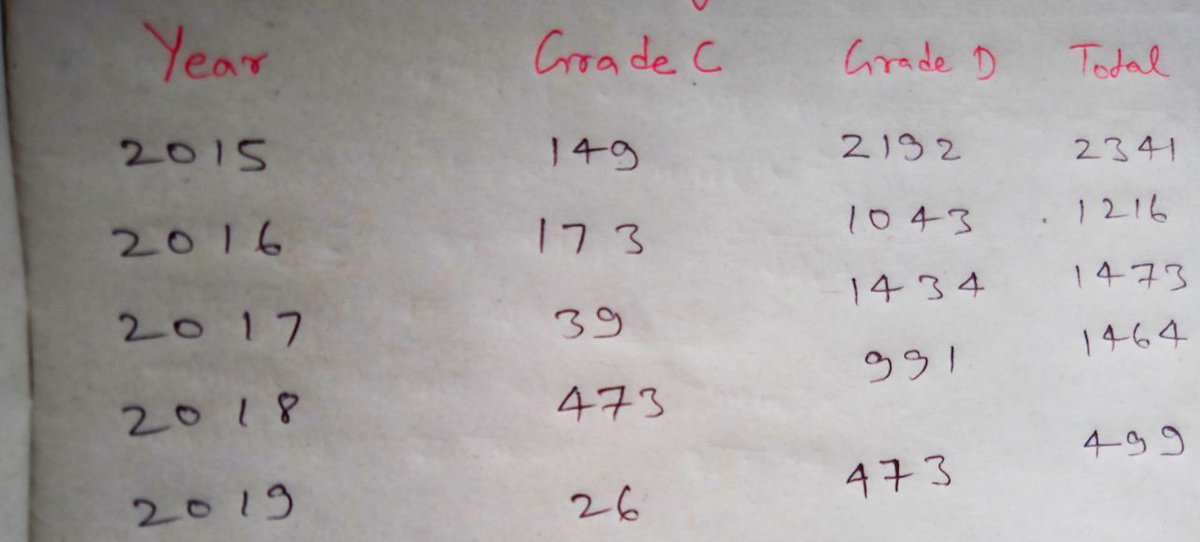 Year Grade C Grade D Total
2015 149 2192 2341
2016 173 1043 1216
2017 39 1434 1473
2018 473 991 1464
2019 26 473 499